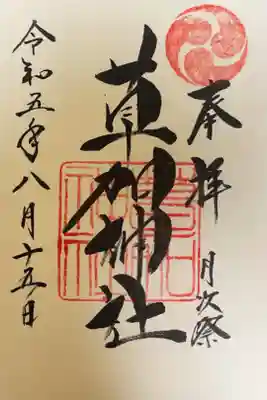 奉拝
月次祭
草加神社
令和五年八月十五日